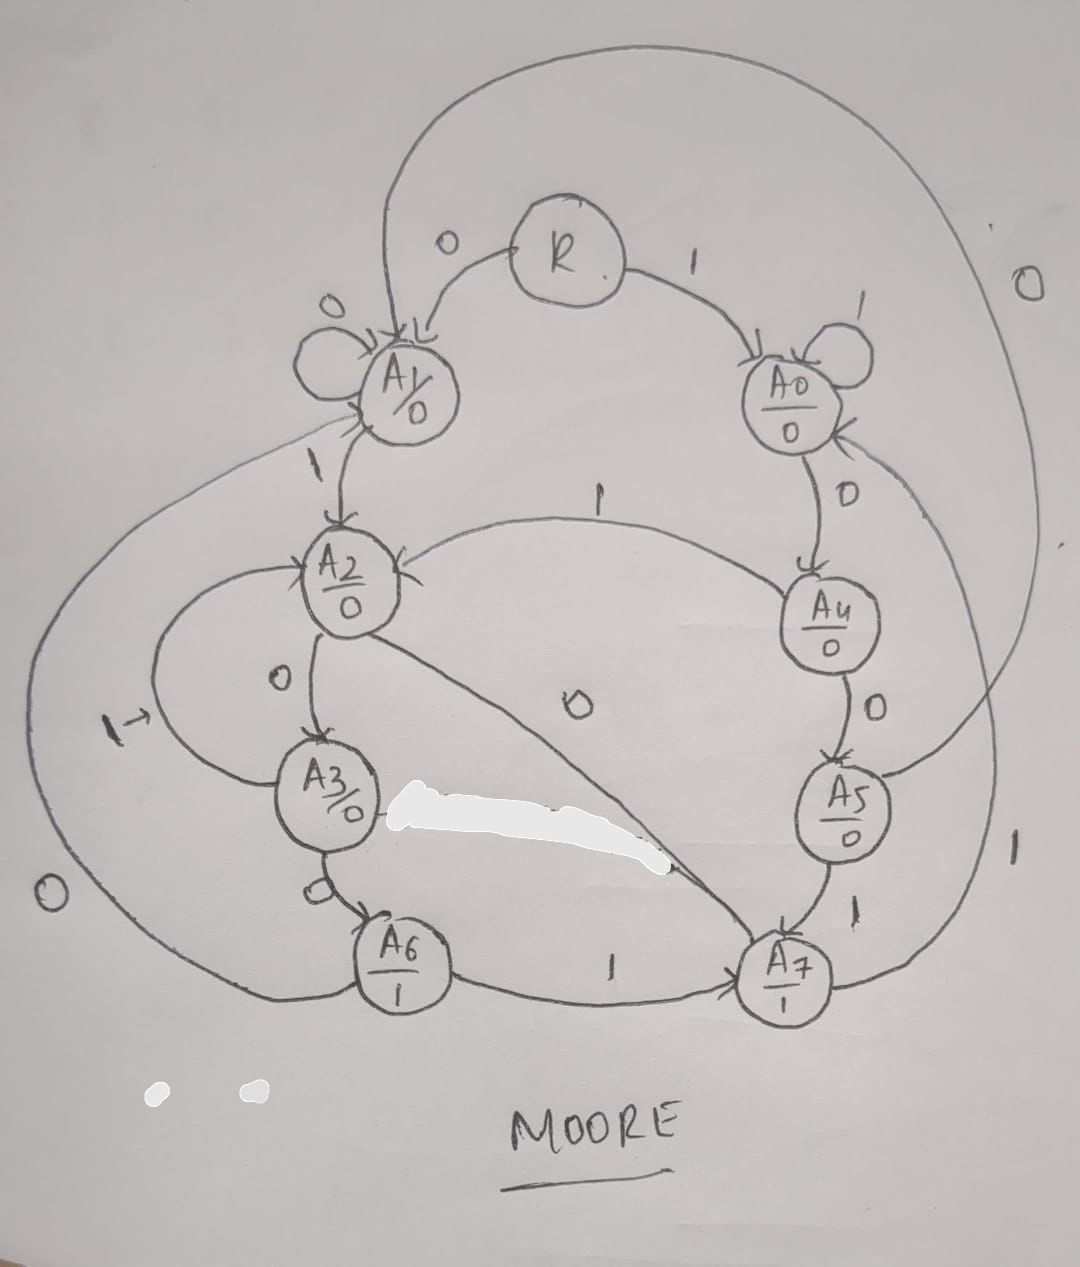 0
R
1
0
0
1
A1/0
A0
0
1
0
1
A2
0
A4
0
0
0
0
1
A3/0
A5
0
1
0
0
1
A6
1
1
A7
1
MOORE